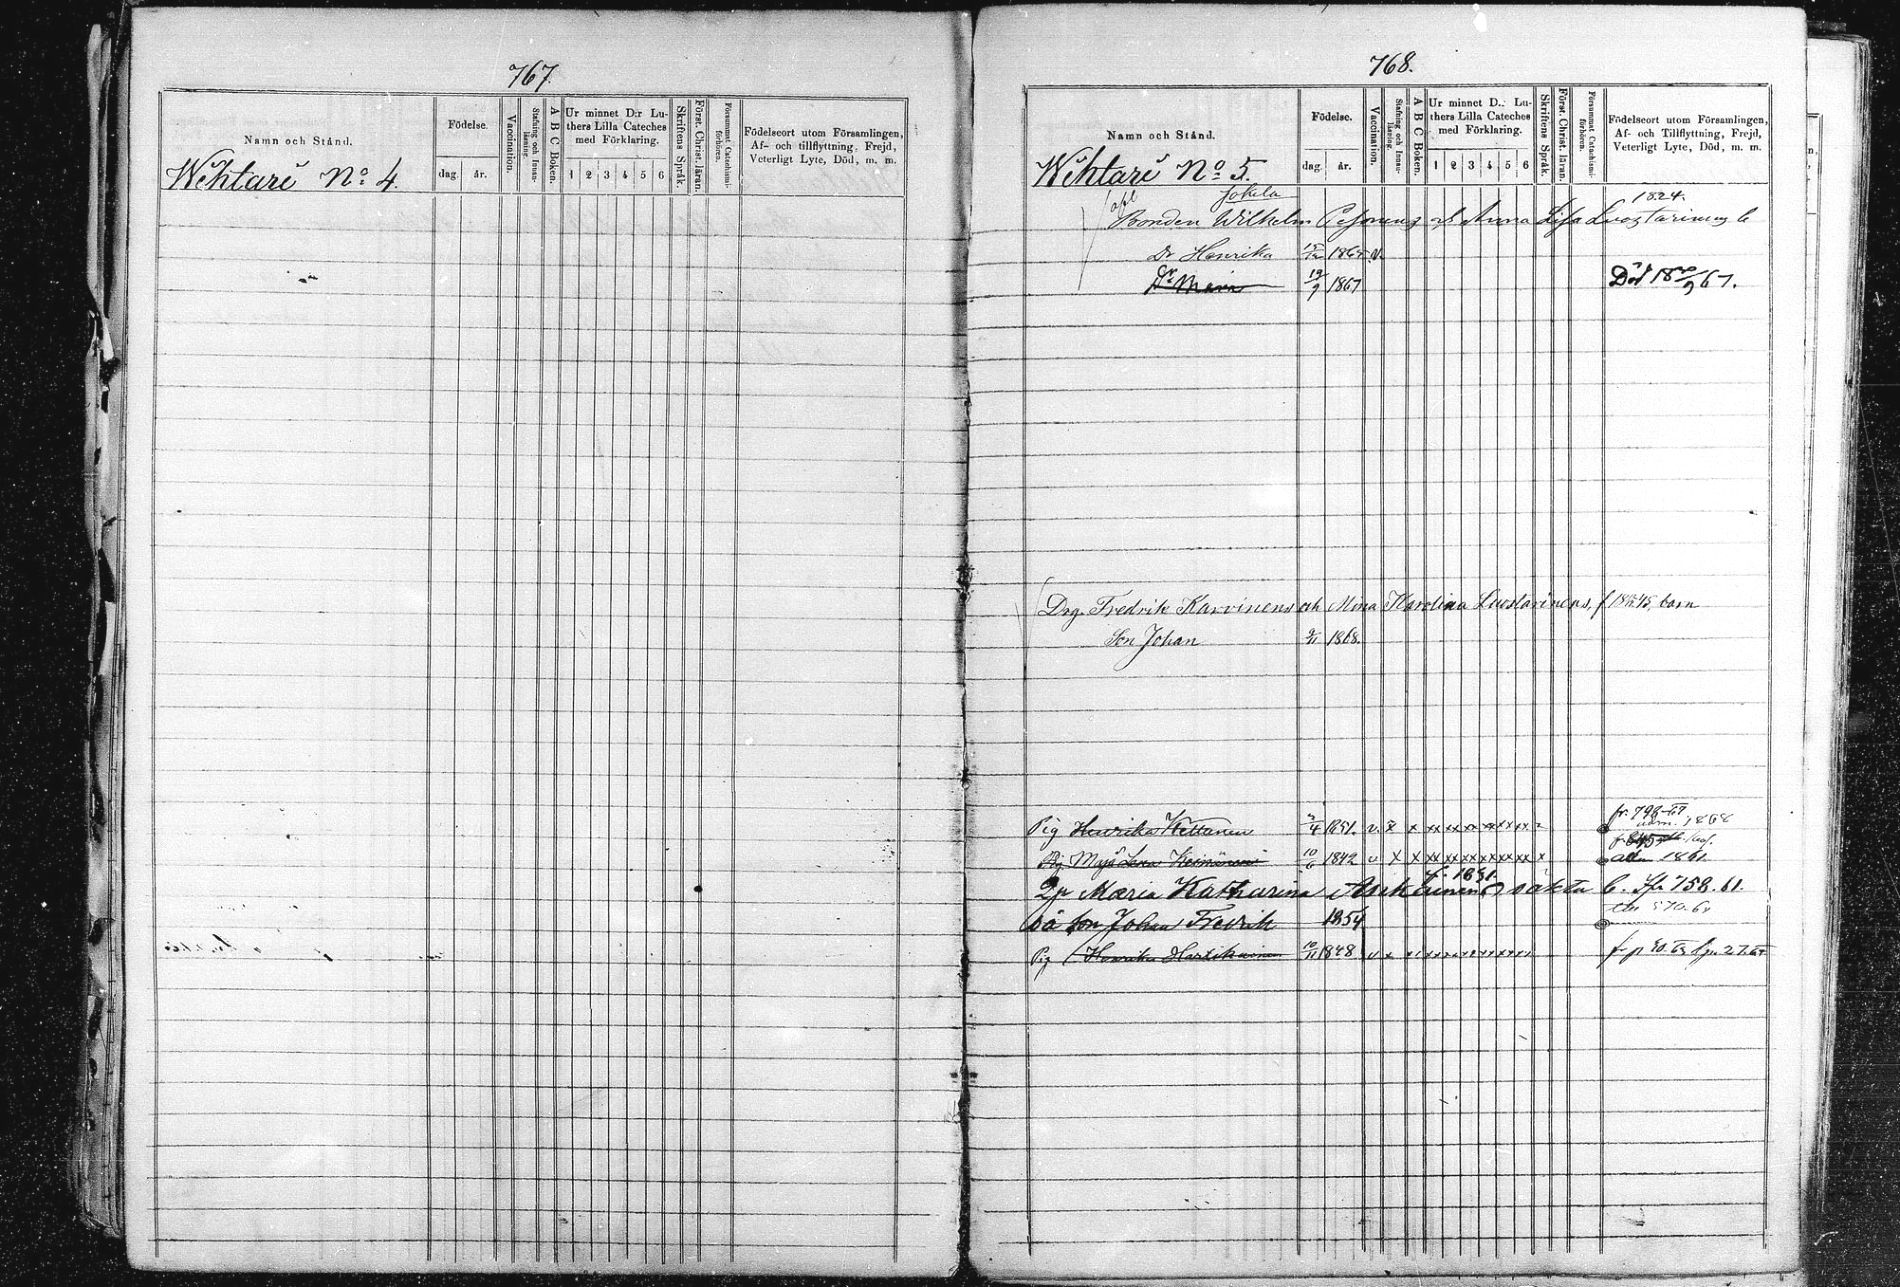 767.
Namn och Stånd.
Födelse.
dag. år.
Vaccination.
Stafning och Innan-läsning.
A B C Boken.
Ur minnet D:r Lu-
thers Lilla Cateches
med Förklaring.
1 2 3 4 5 6
Skriftens Språk.
Först. Christ. läran.
Försummat Catechismi-förhören.
Födelseort utom Församlingen,
Af- och tillflyttning, Frejd,
Veterligt Lyte, Död, m. m.
Wehtari No 4.
768.
Namn och Stånd.
Födelse.
dag. år.
Vaccination.
Stafning och Innan-läsning.
A B C Boken.
Ur minnet D:r Lu-
thers Lilla Cateches
med Förklaring.
1 2 3 4 5 6
Skriftens Språk.
Först. Christ. läran.
Försummat Catechismi-förhören.
Födelseort utom Församlingen,
Af- och Tillflyttning, Frejd,
Veterligt Lyte, Död, m. m.
Wehtari No 5.
Jokela 1824.
Bonden Wilhelm Pesonens och Anna Lisa Luostarinens b
Dr Henrika 1865 v.
Dr Maria 19/9 1867 Död 67.
Drg. Fredrik Karvinens och Mina Karolina Luostarinens, f 1845, barn
Son Johan 1868.
fr. 798-67
Pig Henrika Kettunen 1851. v. x x xx xx xx xx xx xx 1868
Pig Maja Lena 10/6 1842 v x x xx xx xx xx xx xx x 1861.
f. 1831.
Maria Katharina Asikainens b. Ifr 758. 61.
oä son Johan Fredrik 1854
Pig Henrika 10/11 1848 v x x xx xx xx xx xx xx fr p 90. 63